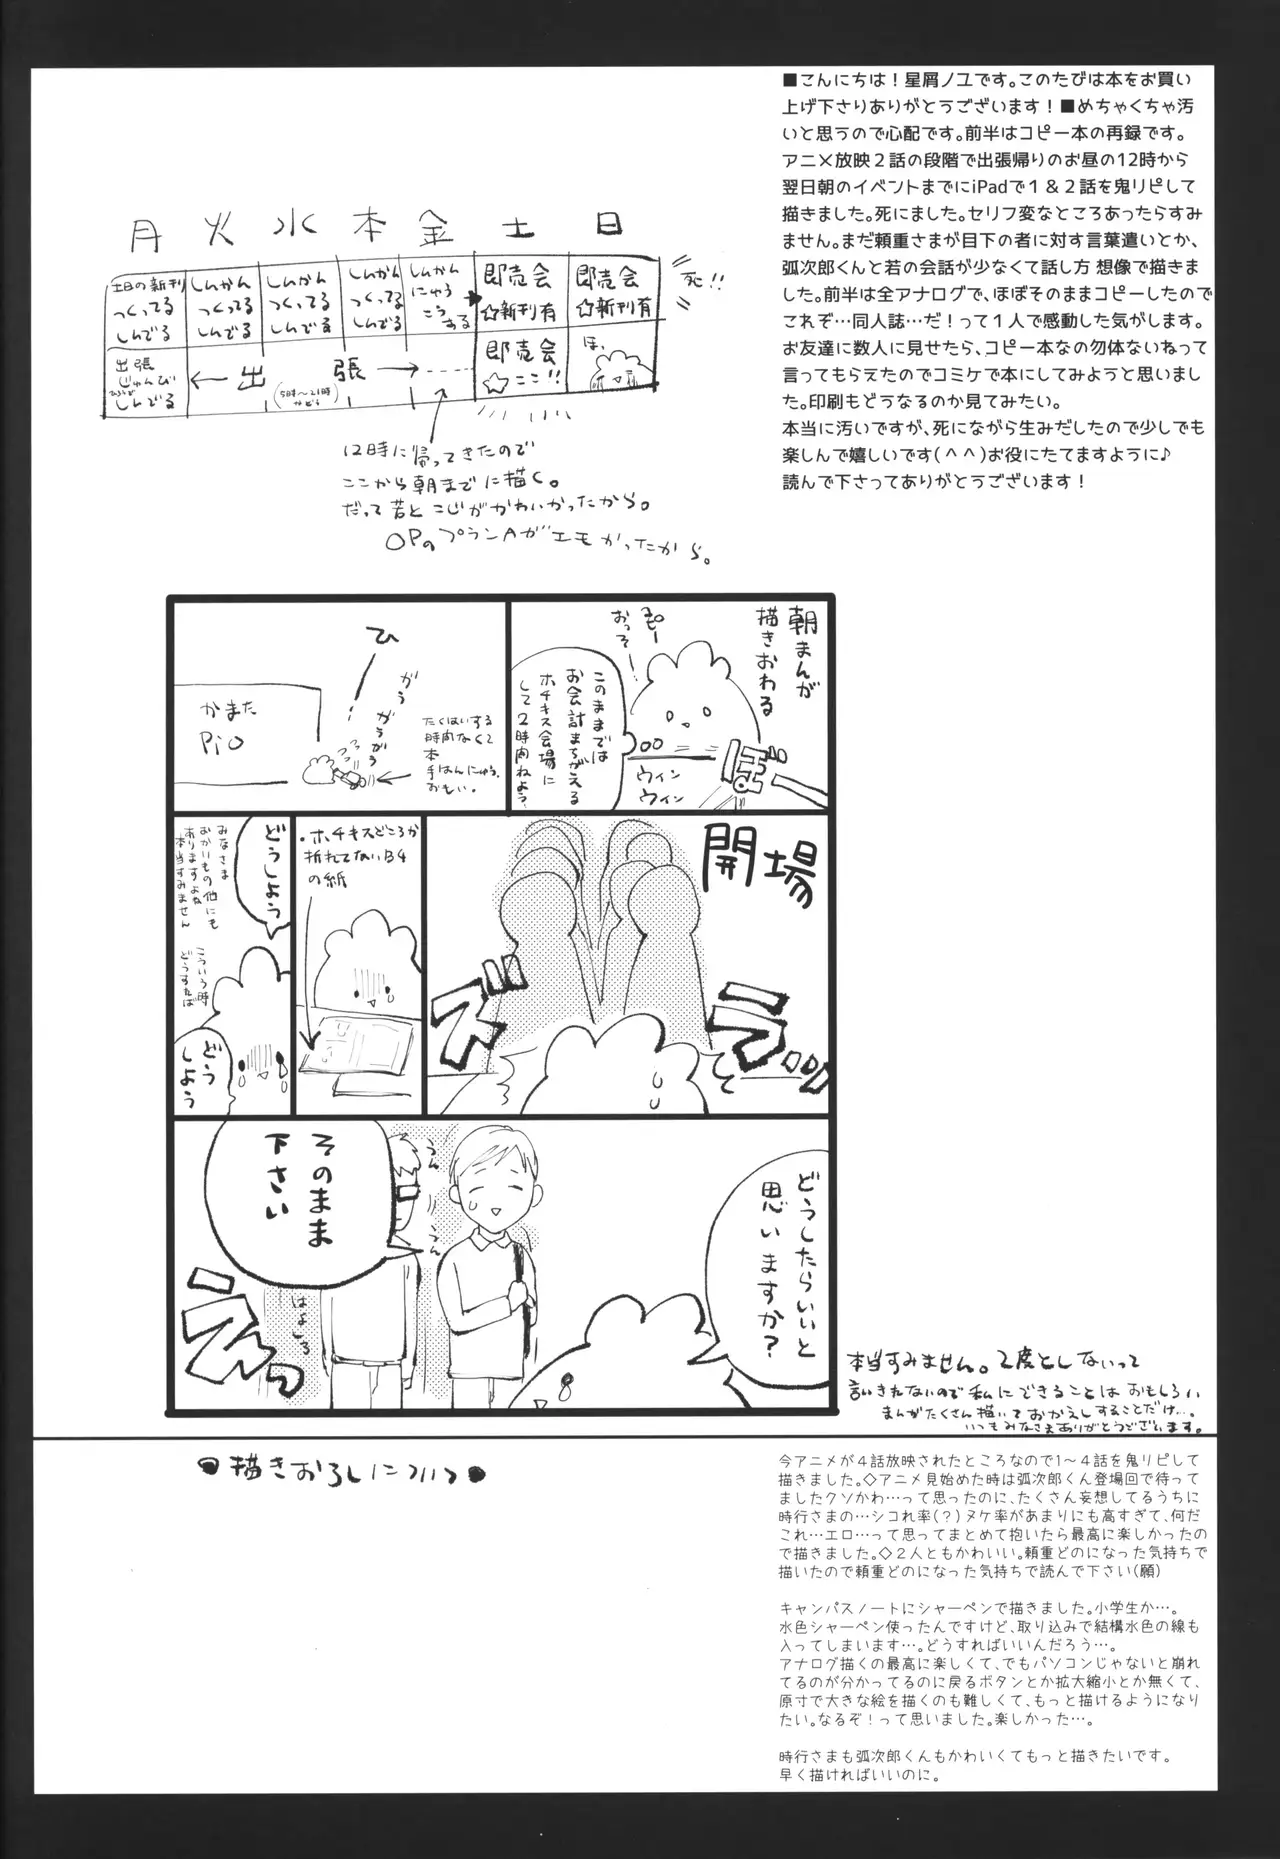 ■こんにちは！星屑ノユです。このたびは本をお買い
上げ下さりありがとうございます！■めちゃくちゃ汚
いと思うので心配です。前半はコピー本の再録です。
アニメ放映２話の段階で出張帰りのお昼の12時から
翌日朝のイベントまでにiPadで１＆２話を鬼リピして
描きました。死にました。セリフ変なところあったらすみ
ません。まだ頼重さまが目下の者に対す言葉遣いとか、
弧次郎くんと若の会話が少なくて話し方 想像で描きま
した。前半は全アナログで、ほぼそのままコピーしたので
これぞ…同人誌…だ！って１人で感動した気がします。
お友達に数人に見せたら、コピー本なの勿体ないねって
言ってもらえたのでコミケで本にしてみようと思いまし
た。印刷もどうなるのか見てみたい。
本当に汚いですが、死にながら生みだしたので少しでも
楽しんで嬉しいです(＾＾)お役にたてますように♪
読んで下さってありがとうございます！
月 火 水 本 金 土 日
土日の新刊
つくってる
しんでる
しんかん
つくってる
しんでる
しんかん
つくってる
しんでる
しんかん
つくってる
しんでる
しんかん
にゅう
こう
する
即売会
☆新刊有
即売会
☆新刊有
死!!
出張
じゅんび
しんでる
←出 張→
(5時〜21時
即売会
☆ここ!!
ほ、
12時に帰ってきたので
ここから朝までに描く。
だって若とこじがかわいかったから。
OPのプランAがエモかったから。
朝まんが
描きおわる
おっそ
このままでは
お会計まちがえる
ホチキス会場に
して2時間ねよう
ウィン
ウィン
ぼー
ひー
がう がうがう
かまた
Pio
たくはいする
時間なくて
本
手はんにゅう。
おもい。
開場
ズラ…
・ホチキスどころか
折れてないB4
の紙
どうしよう
みなさま
おかいもの他にも
ありますよね
本当すみません
こういう時
どうすれば
どう
しよう
どうしたらいいと
思いますか？
うん
うん
そのまま
下さい
はよしろ
えっ
本当すみません。2度としないって
言いきれないので私にできることはおもしろい
まんがたくさん描いておかえしすることだけ…。
いつもみなさまありがとうございます。
●描きおろしについて●
今アニメが４話放映されたところなので１〜４話を鬼リピして
描きました。◇アニメ見始めた時は弧次郎くん登場回で待って
ましたクソかわ…って思ったのに、たくさん妄想してるうちに
時行さまの…シコれ率(？)ヌケ率があまりにも高すぎて、何だ
これ…エロ…って思ってまとめて抱いたら最高に楽しかったの
で描きました。◇２人ともかわいい。頼重どのになった気持ちで
描いたので頼重どのになった気持ちで読んで下さい(願)
キャンパスノートにシャーペンで描きました。小学生か…。
水色シャーペン使ったんですけど、取り込みで結構水色の線も
入ってしまいます…。どうすればいいんだろう…。
アナログ描くの最高に楽しくて、でもパソコンじゃないと崩れ
てるのが分かってるのに戻るボタンとか拡大縮小とか無くて、
原寸で大きな絵を描くのも難しくて、もっと描けるようになり
たい。なるぞ！って思いました。楽しかった…。
時行さまも弧次郎くんもかわいくてもっと描きたいです。
早く描ければいいのに。